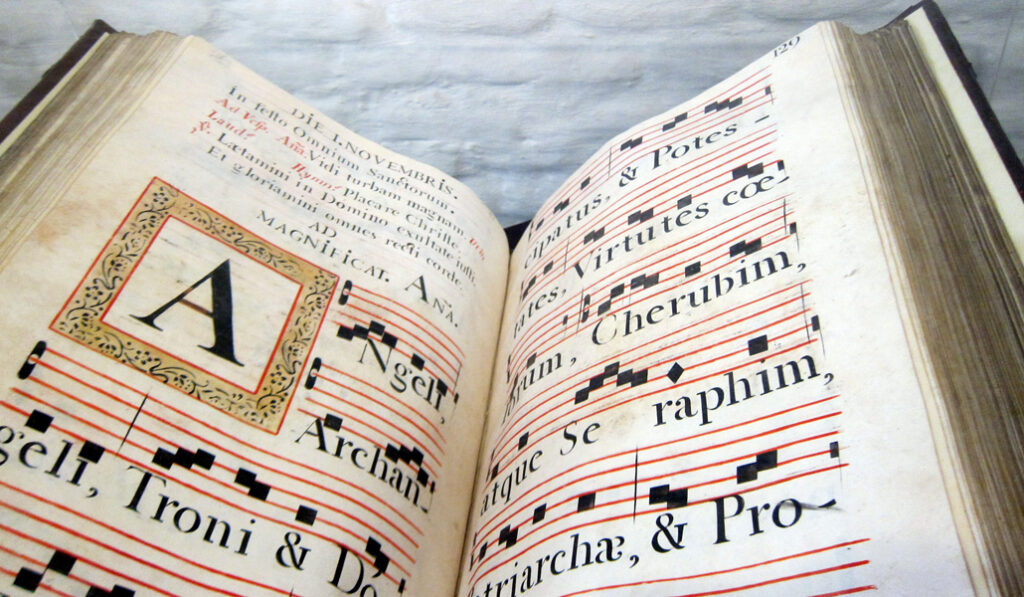 DIE I. NOVEMBRIS.
In festo Omnium Sanctorum.
Ad Vesp. Aña. Vidi turbam magnam.
Laud.s Hymn.s Placare Christe.
℣. Lætamini in Domino exultate justi,
Et gloriamini omnes recti corde.
AD
MAGNIFICAT. AÑA.
A Ngeli,
Archan-
geli, Troni & Do
120
cipatus, & Potes -
tates, Virtutes cœ-
orum, Cherubim,
atque Se raphim,
atriarchæ, & Pro-